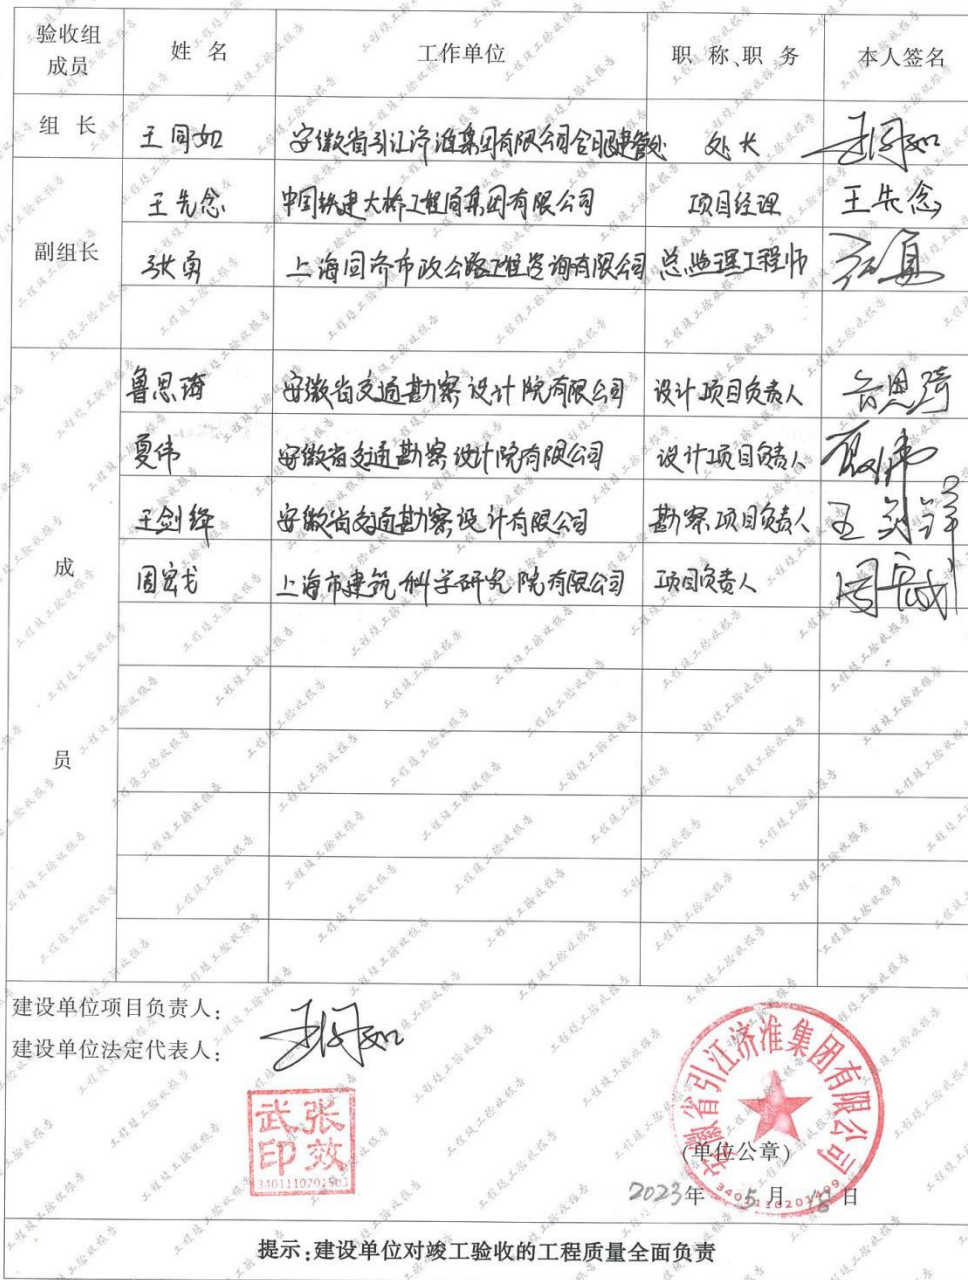 验收组成员 姓 名 工作单位 职 称、职 务 本人签名
组 长 王同如 安徽省引江济淮集团有限公司合肥建管处 处长 王同如
副组长
王先念 中国铁建大桥工程局集团有限公司 项目经理 王先念
张勇 上海同济市政公路工程咨询有限公司 总监理工程师 张勇
成员
鲁思琦 安徽省交通勘察设计院有限公司 设计项目负责人 鲁思琦
夏伟 安徽省交通勘察设计院有限公司 设计项目负责人 夏伟
王剑锋 安徽省交通勘察设计有限公司 勘察项目负责人 王剑锋
周宏 上海市建筑科学研究院有限公司 项目负责人
建设单位项目负责人: 王同如
建设单位法定代表人:
张效武印
3401110201503
安徽省引江济淮集团有限公司
(单位公章)
2023年 5月 18日
提示:建设单位对竣工验收的工程质量全面负责
工程竣工验收报告